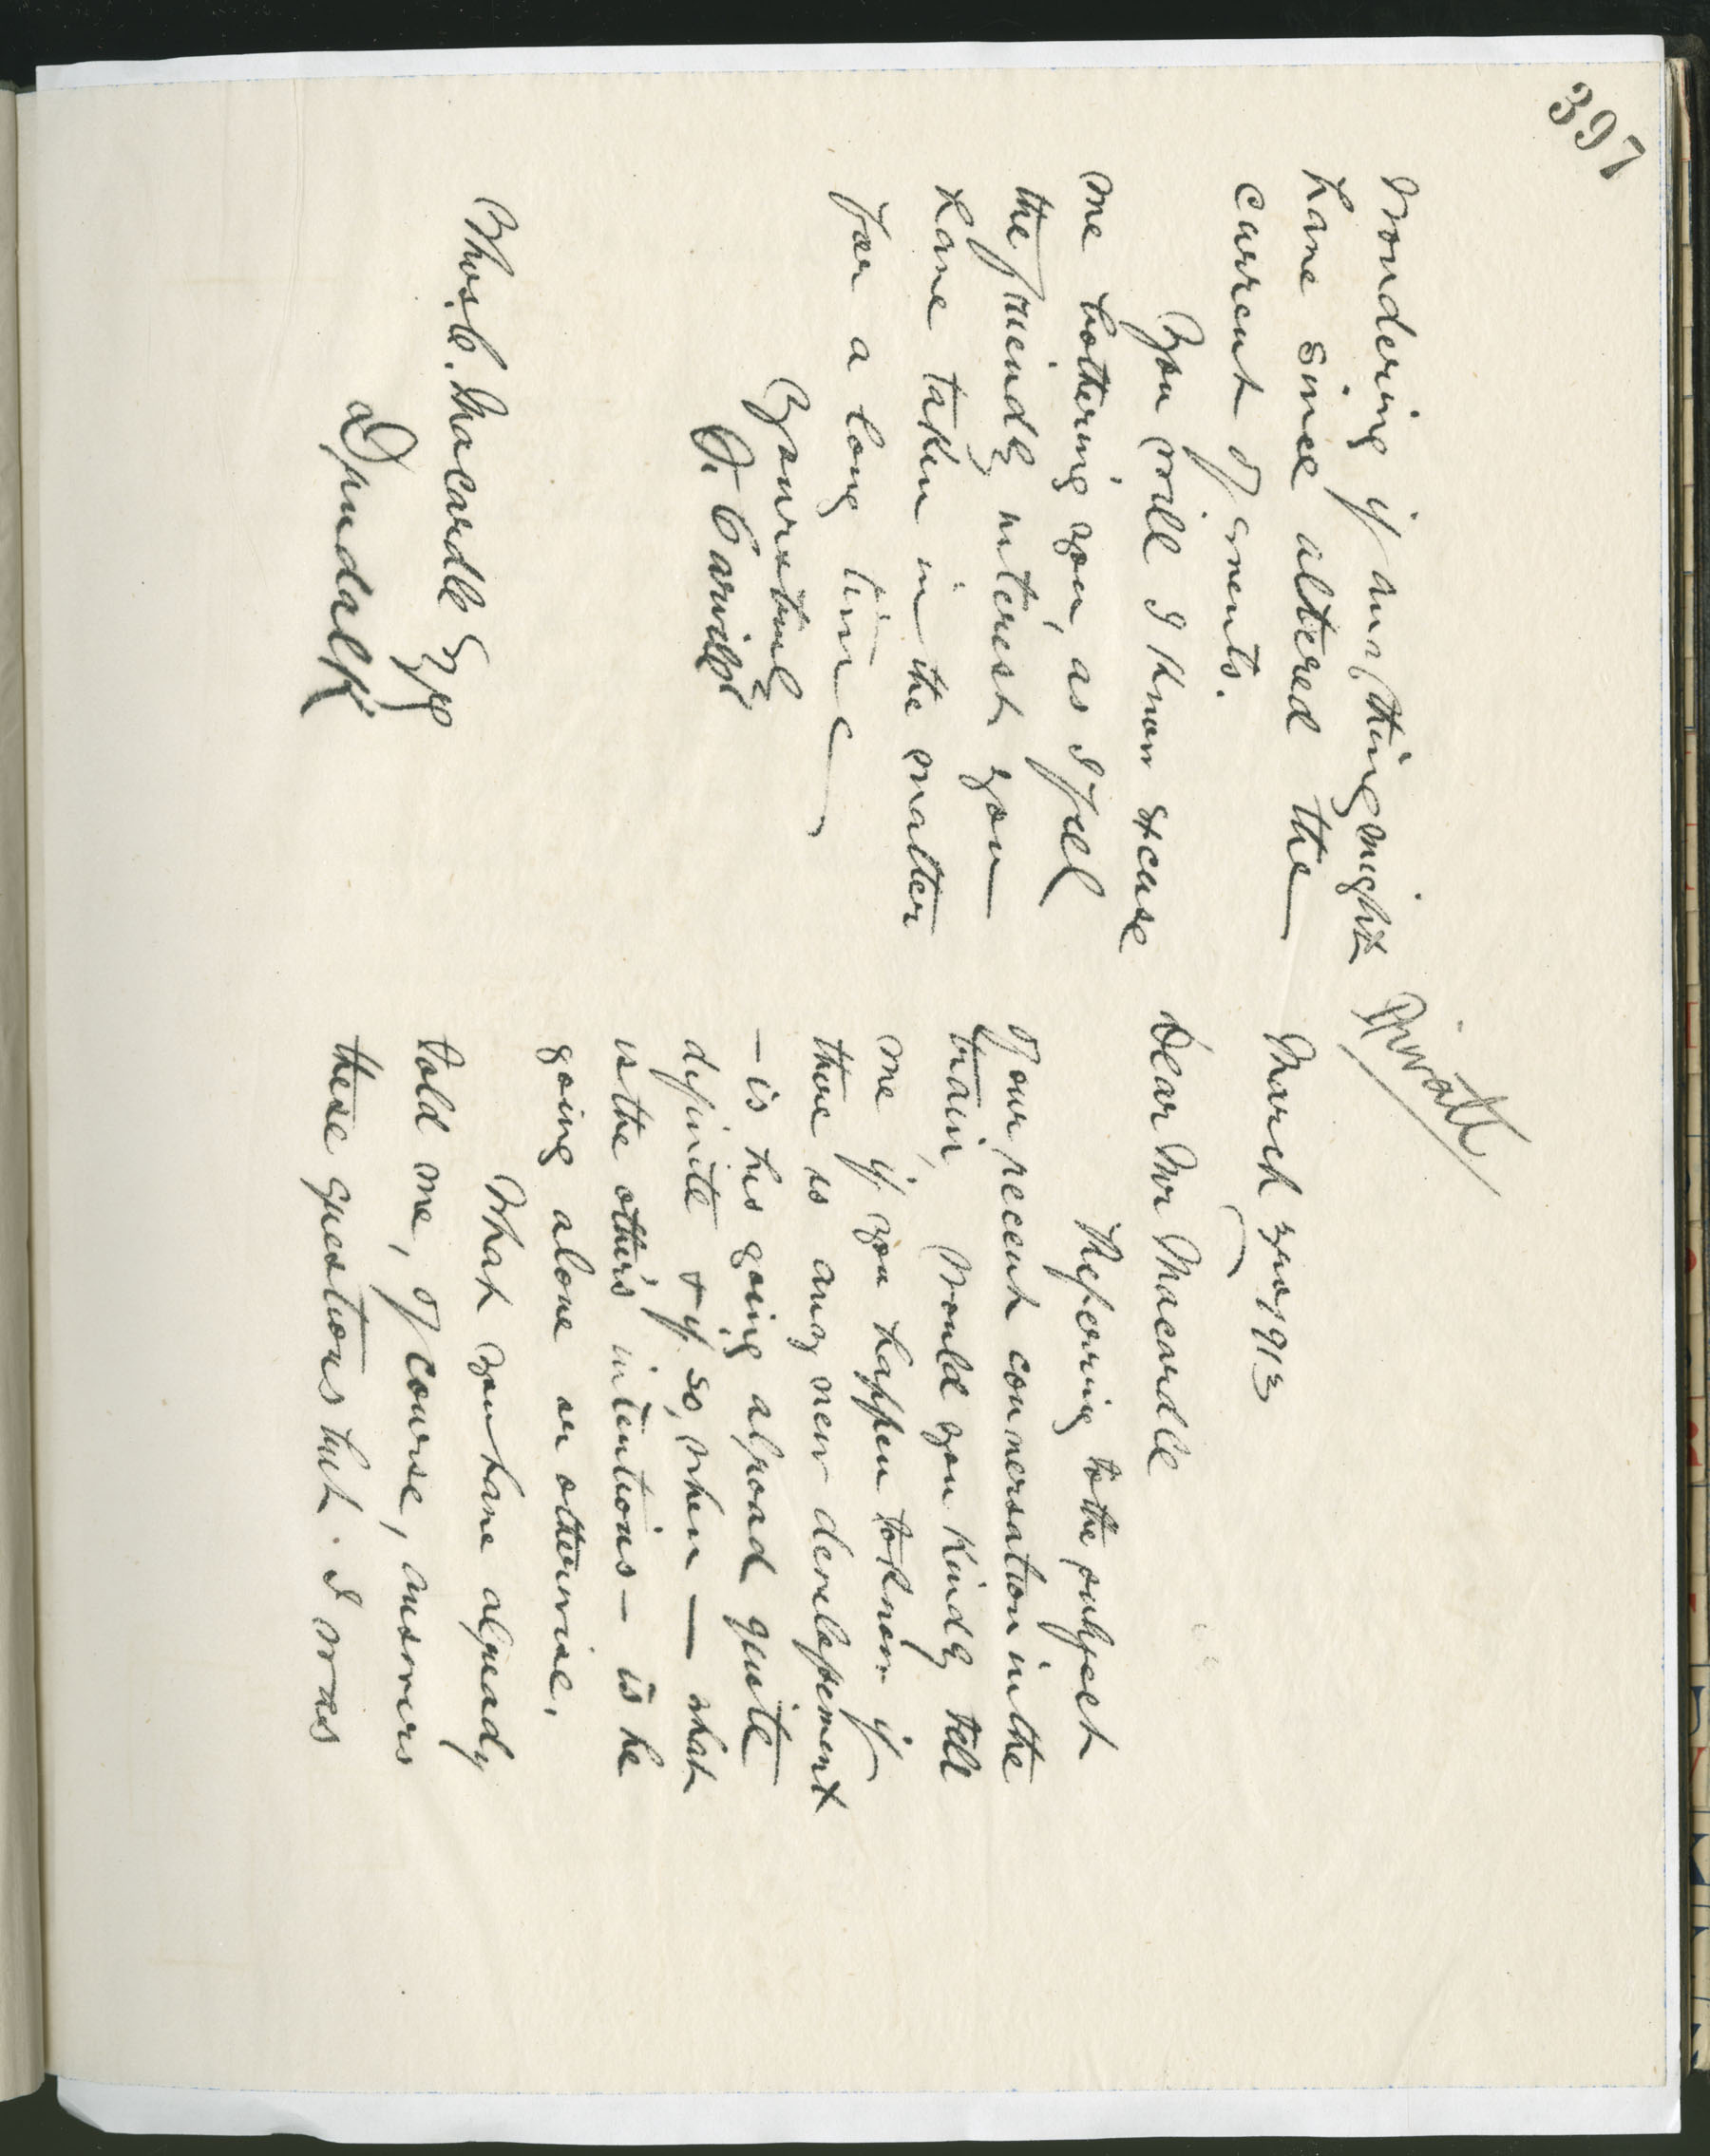 397
Private
March 3rd 1913
Dear Mr Macardle
Referring to the subject
of our recent conversation in the
train, would you kindly tell
me if you happen to know if
there is any new developement
– is his going abroad quite
definite & if so, when — what
is the other's intentions – is he
going alone or otherwise.
What you have already
told me, of course, answers
these questions but I was
wondering if anything might
have since altered the
current of events.
You will I know excuse
me bothering you, as I feel
the friendly interest you
have taken in the matter
for a long time
Yours truly
F. Carvill
Thos. C. Macardle Esq
Dundalk